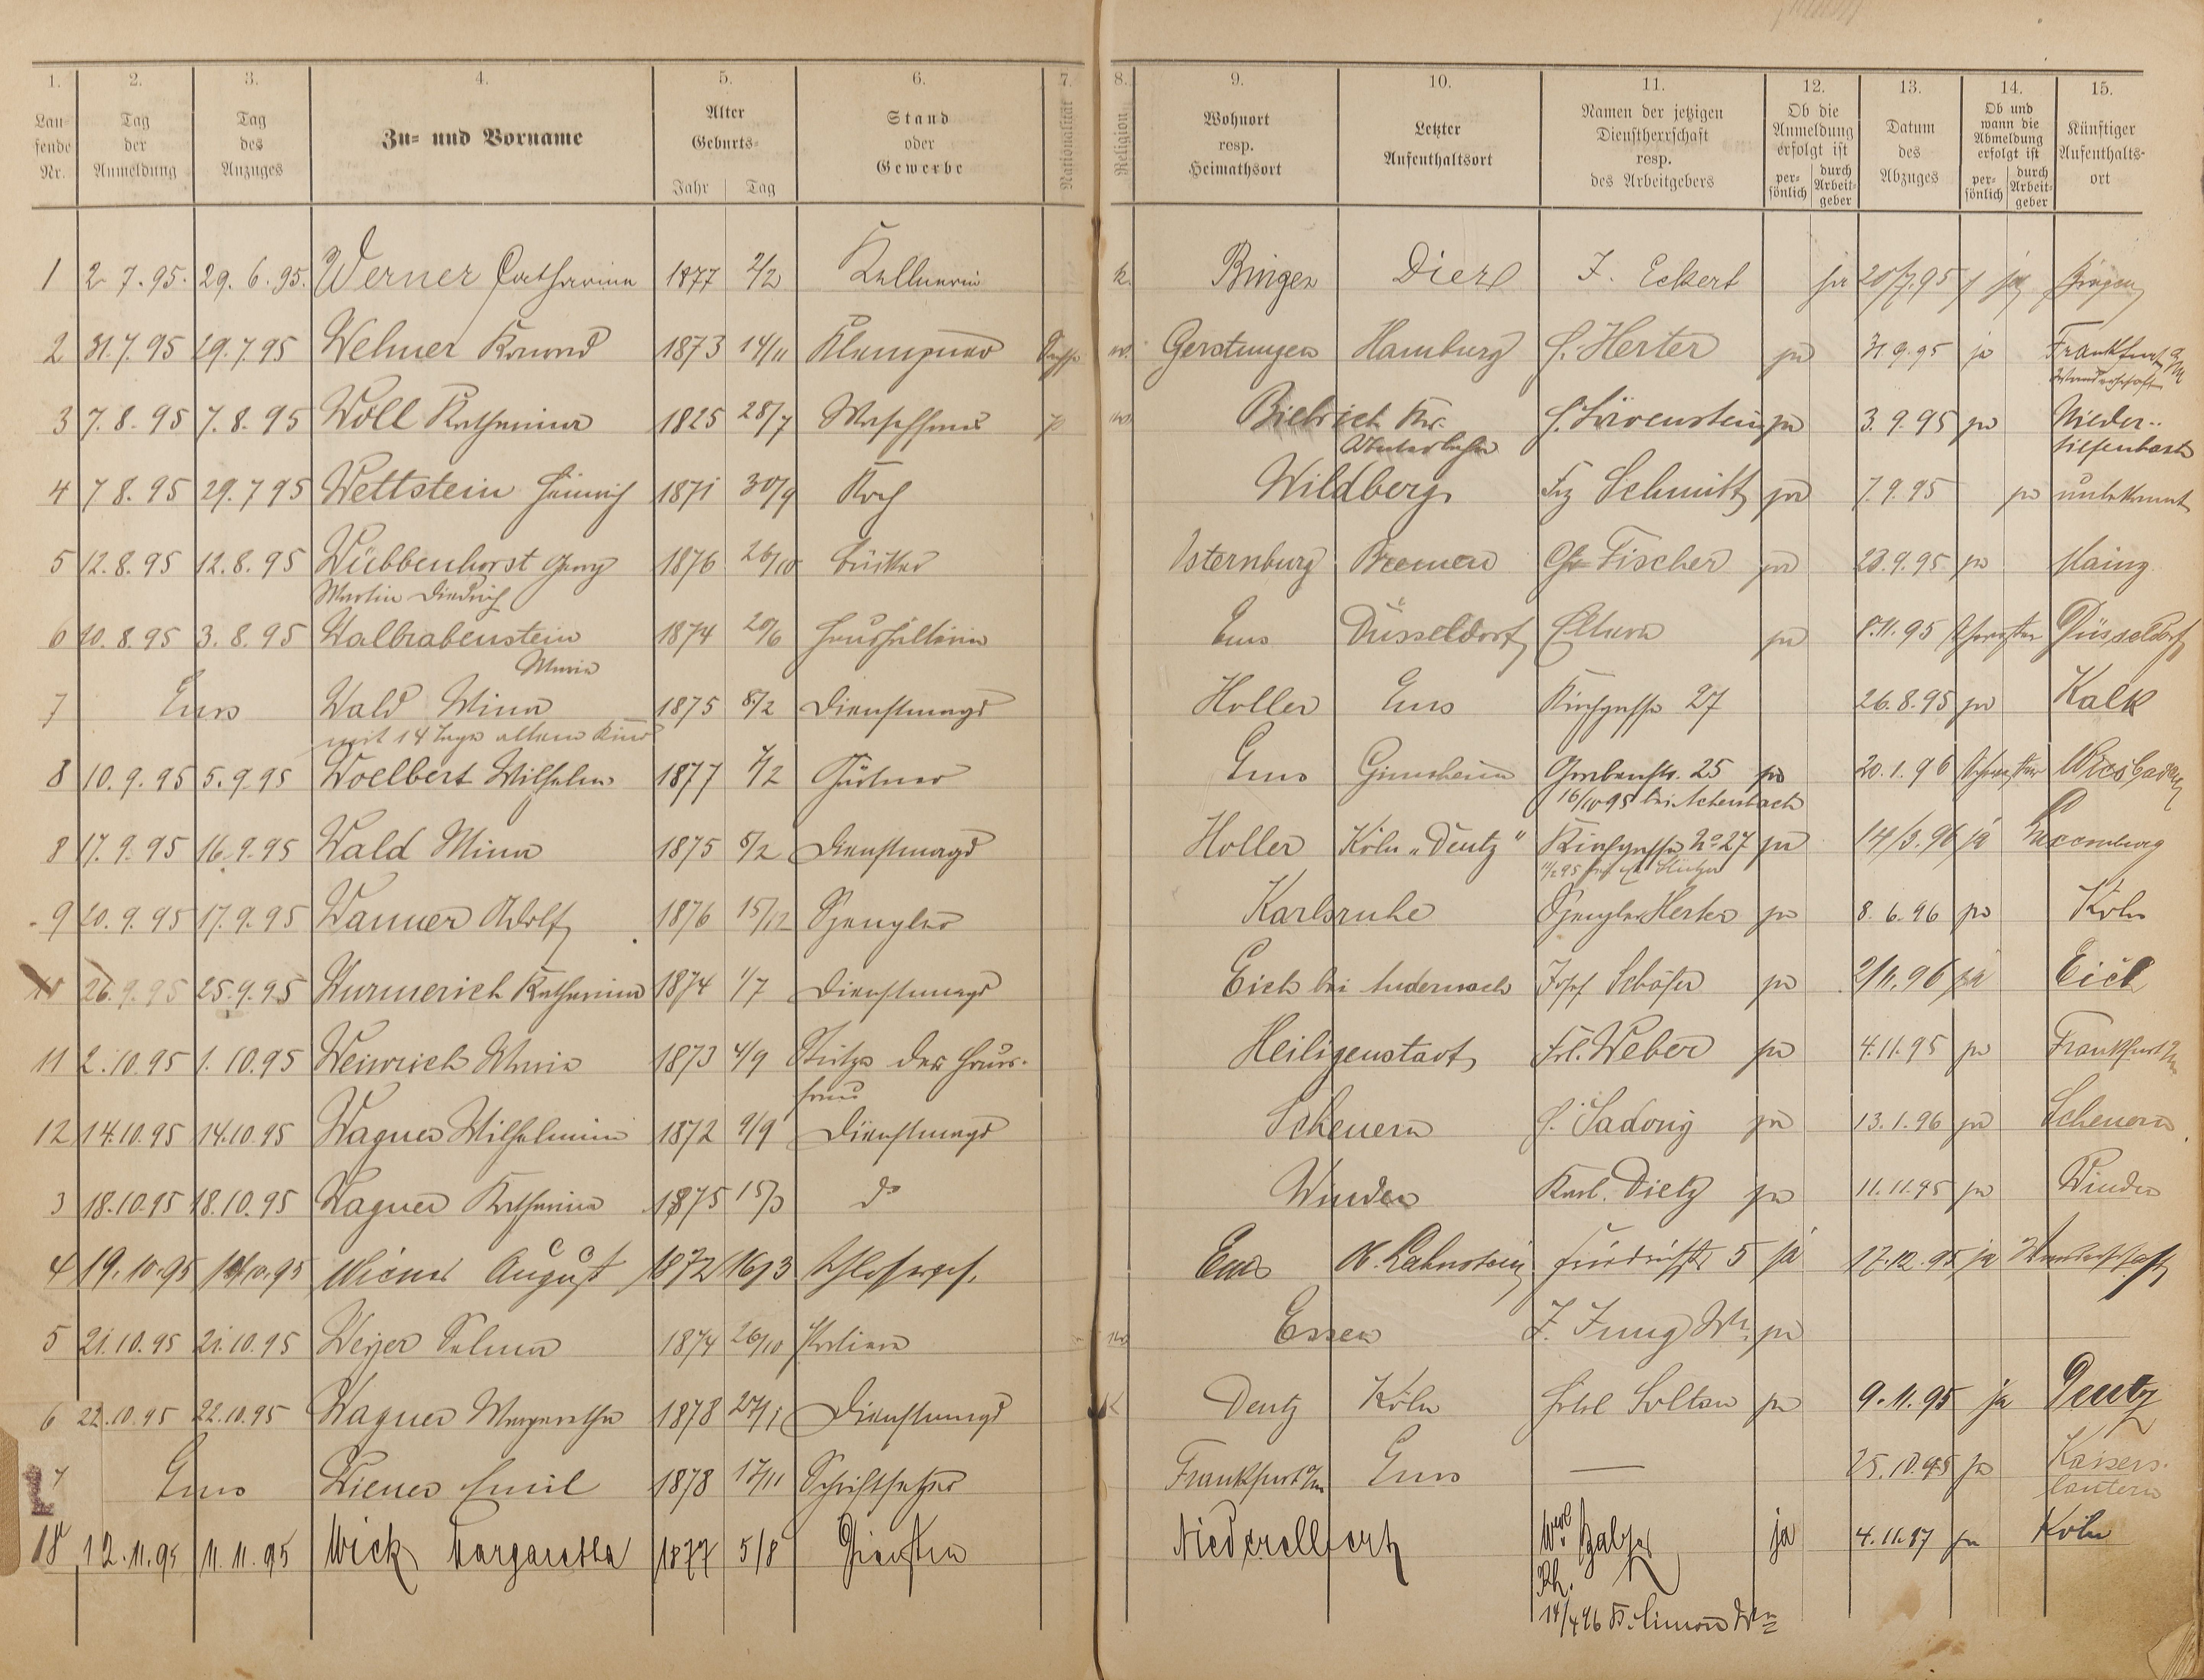 1. 2. 3. 4. 5. 6. 7. 8. 9. 10. 11. 12. 13. 14. 15.
Laufende Nr. Tag der Anmeldung Tag des Anzuges Zu- und Vorname Alter Geburts- Jahr Tag Stand oder Gewerbe Nationalität Religion Wohnort resp. Heimathsort Letzter Aufenthaltsort Namen der jetzigen Dienstherrschaft resp. des Arbeitgebers Ob die Anmeldung erfolgt ist persönlich durch Arbeitgeber Datum des Abzuges Ob und wann die Abmeldung erfolgt ist persönlich durch Arbeitgeber Künftiger Aufenthaltsort
1 2 7. 95. 29. 6. 95. Werner Catharina 1877 2/2 Kellnerin k. Bingen Diez J. Eckert ja 20/7.95 ja Bingen
2 31.7.95 29.7.95 Wehner Konrad 1873 14/11 Klempner Gerstungen Hamburg H. Herter ja 31 9.95 ja Frankfurt a/M
Wanderschaft
3 7.8.95 7.8.95 Woll Katharina 1825 28/7 Waschfrau Biebrich Kr. H. Löwenstein ja 3.9.95 ja Nieder-
tiefenbach
4 7 8.95 29.7 95 Wettstein Heinrich 1871 30/9 Koch Wildberg Frz Schmitt ja 7.9.95 ja unbekannt
5 12.8.95 12.8.95 Wübbenhorst Georg 1876 26/10 Bäcker Osternburg Bremen Chr Fischer ja 20.9.95 ja Mainz
Martin Diedrich
6 10.8.95 3.8.95 Walbrabenstein 1874 20/6 Haushälterin Ems Düsseldorf Eltern ja 8.11.95 Düsseldorf
Maria
7 Ems Wald Mina 1875 8/2 Dienstmagd Holler Ems Kirchgasse 27 26.8.95 ja Kalk
mit 14 Tage altem Kind
8 10.9.95 5.9.95 Woelbert Wilhelm 1877 7/2 Gärtner Ems Ginsheim Grabenstr. 25 ja 20.1.96 Wiesbaden
16/10 95 bei Achenbach
8 17.9.95 16.9.95 Wald Mina 1875 8/2 Dienstmagd Holler Köln „Deutz“ Kirchgasse No 27 ja 14/3.96 ja Luxemburg
9 20.9.95 17.9.95 Wanner Adolf 1876 15/12 Spengler Karlsruhe Spengler Herter ja 8.6.96 ja Köln
10 26.9.95 25.9.95 Wurmerich Katharina 1874 1/7 Dienstmagd Eich bei Andernach Josef Schäfer ja 2/11.96 ja Eich
11 2.10.95 1.10.95 Weinrich Maria 1873 4/9 Stütze der Haus-
frau Heiligenstadt Frl. Weber ja 4.11.95 ja Frankfurt
12 14.10.95 14.10.95 Wagner Wilhelmine 1872 9/9 Dienstmagd Scheuern H. Sadony ja 13.1.96 ja Scheuern
3 18.10.95 18.10.95 Wagner Katharina 1875 15/3 do Winden Karl Dietz ja 11.11.95 ja Winden
4 19.10.95 19/10.95 Wiener August 1872 16/3 Schlosserges. Ems N. Lahnstein Friedrichstr 5 ja 17.12.95 ja Wanderschaft
5 21.10.95 21.10.95 Weyer Selma 1874 26/10 Essen J. Jung Wwe. ja
6 22.10.95 22.10.95 Wagner Margaretha 1878 27/1 Dienstmagd K Deutz Köln Hotel Soltau ja 9.11.95 ja Deutz
7 Ems Wiener Emil 1878 17/11 Schriftsetzer Frankfurt a/m Ems — 25.10.95 ja Kaisers-
lautern
18 12.11.95 11.11.95 Wick Margaretha 1877 5/8 Niederelbert ja 4.11.97 ja Köln
14/4 96 B. Simon Wwe